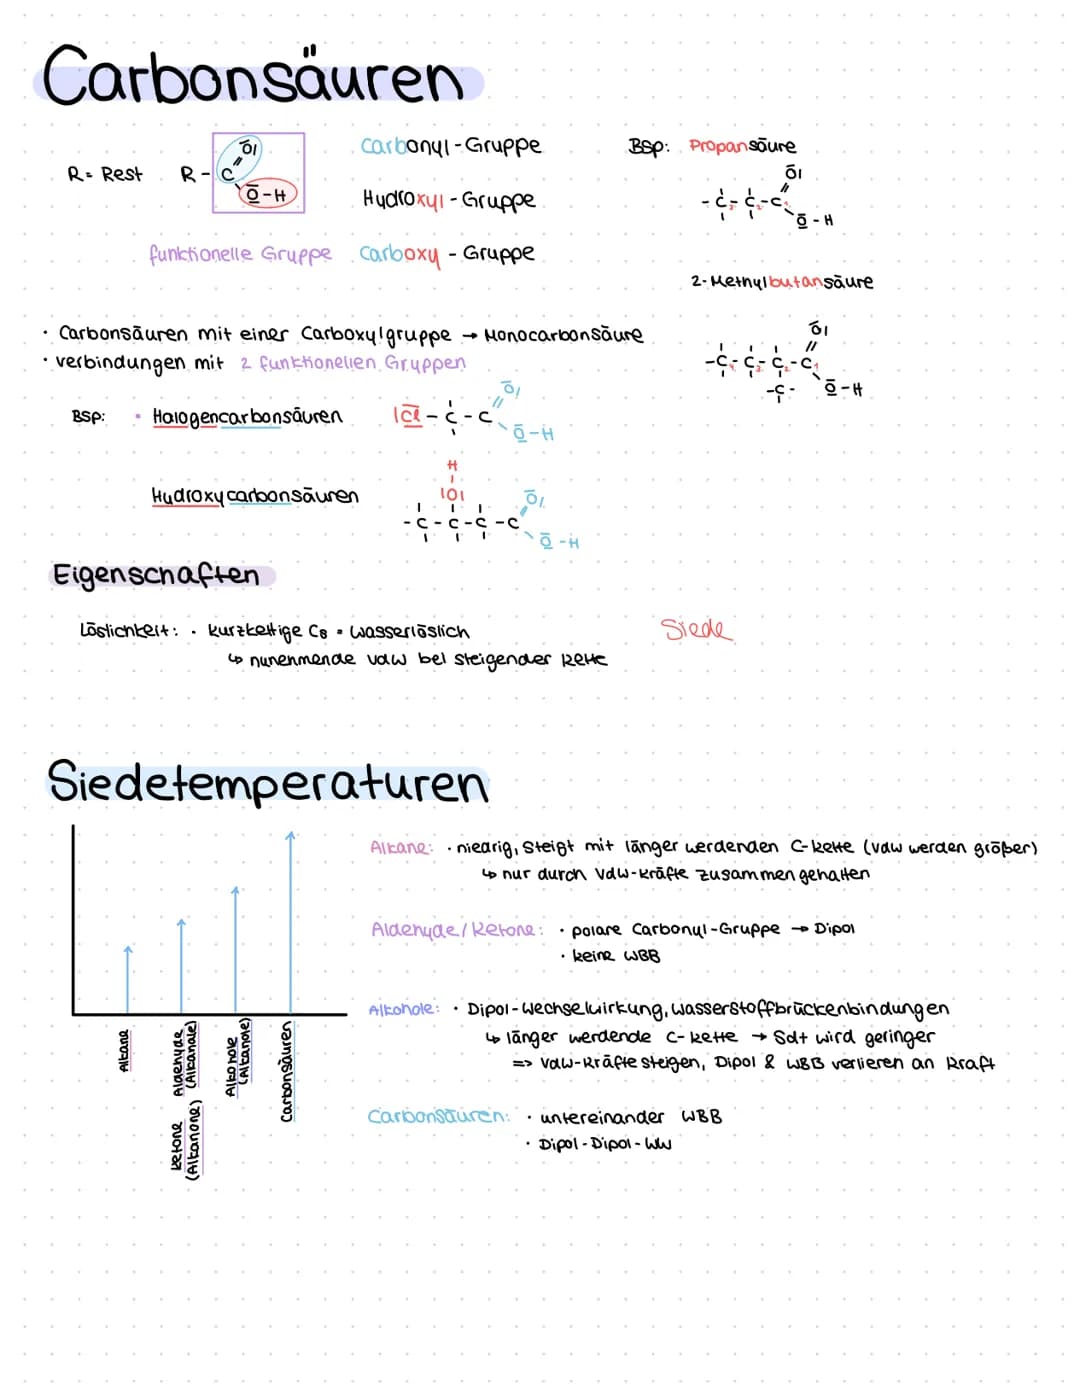 Carbonsäuren
R = Rest
R - C
O
O - H
Carbonyl - Gruppe
Hydroxyl - Gruppe
funktionelle Gruppe
Carboxy - Gruppe
Bsp: Propansäure
- C3 - C2 - C1
O
O - H
2-Methylbutansäure
- C4 - C3 - C2 - C1
O
O - H
- C -
· Carbonsäuren mit einer Carboxylgruppe → Monocarbonsäure
· verbindungen mit 2 funktionellen Gruppen
BSP: · Halogencarbonsäuren
Cl - C - C
O
O - H
Hydroxycarbonsäuren
H
O
- C - C - C - C
O
O - H
Eigenschaften
Löslichkeit: · kurzkettige C8 = wasserlöslich
↳ nunehmende vdw bei steigender Kette
Siede
Siedetemperaturen
Alkane
Aldehyde (Alkanale)
Ketone (Alkanone)
Alkohole (Alkanole)
Carbonsäuren
Alkane: · niedrig, steigt mit länger werdenden C-kette (vdw werden größer)
↳ nur durch vdw-kräfte zusammen gehalten
Aldehyde / Ketone: · polare Carbonyl-Gruppe → Dipol
· keine WBB
Alkohole: · Dipol-Wechselwirkung, wasserstoffbrückenbindungen
↳ länger werdende C-kette → Sdt wird geringer
=> vdw-kräfte steigen, Dipol & WBB verlieren an kraft
Carbonsäuren: · untereinander WBB
· Dipol-Dipol-WW